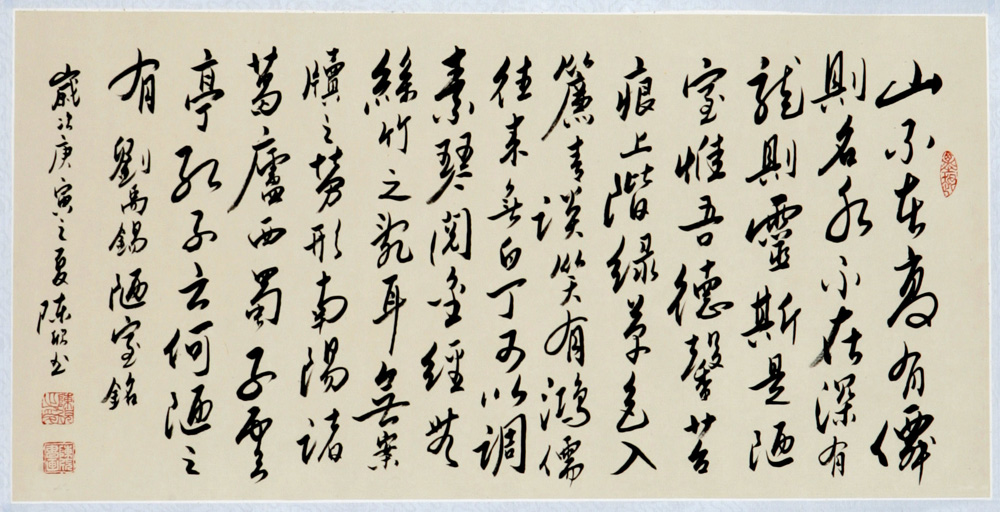 山不在高有僊
則名水不在深有
龍則靈斯是陋
室惟吾德馨苔
痕上階緑草色入
簾青談笑有鴻儒
往来無白丁可以調
素琴閲金經無
絲竹之亂耳無案
牘之勞形南陽諸
葛廬西蜀子雲
亭孔子云何陋之
有 劉禹錫陋室銘
歲次庚寅之夏陳书